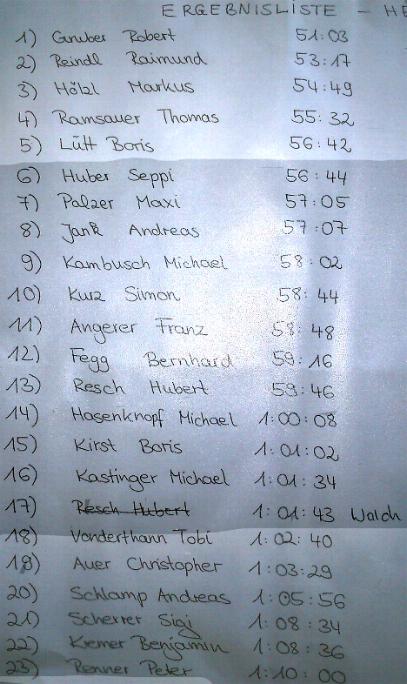 ERGEBNISLISTE - HE
1) Gruber Robert 51:03
2) Reindl Raimund 53:17
3) Hölzl Markus 54:49
4) Ramsauer Thomas 55:32
5) Lütt Boris 56:42
6) Huber Seppi 56:44
7) Palzer Maxi 57:05
8) Jank Andreas 57:07
9) Kambusch Michael 58:02
10) Kurz Simon 58:44
11) Angerer Franz 58:48
12) Fegg Bernhard 59:16
13) Resch Hubert 59:46
14) Hasenknopf Michael 1:00:08
15) Kirst Boris 1:01:02
16) Kastinger Michael 1:01:34
17) Resch Hubert 1:01:43 Walch
18) Vonderthann Tobi 1:02:40
19) Auer Christopher 1:03:29
20) Schlamp Andreas 1:05:56
21) Scherrer Sigi 1:08:34
22) Kremer Benjamin 1:08:36
23) Renner Peter 1:10:00